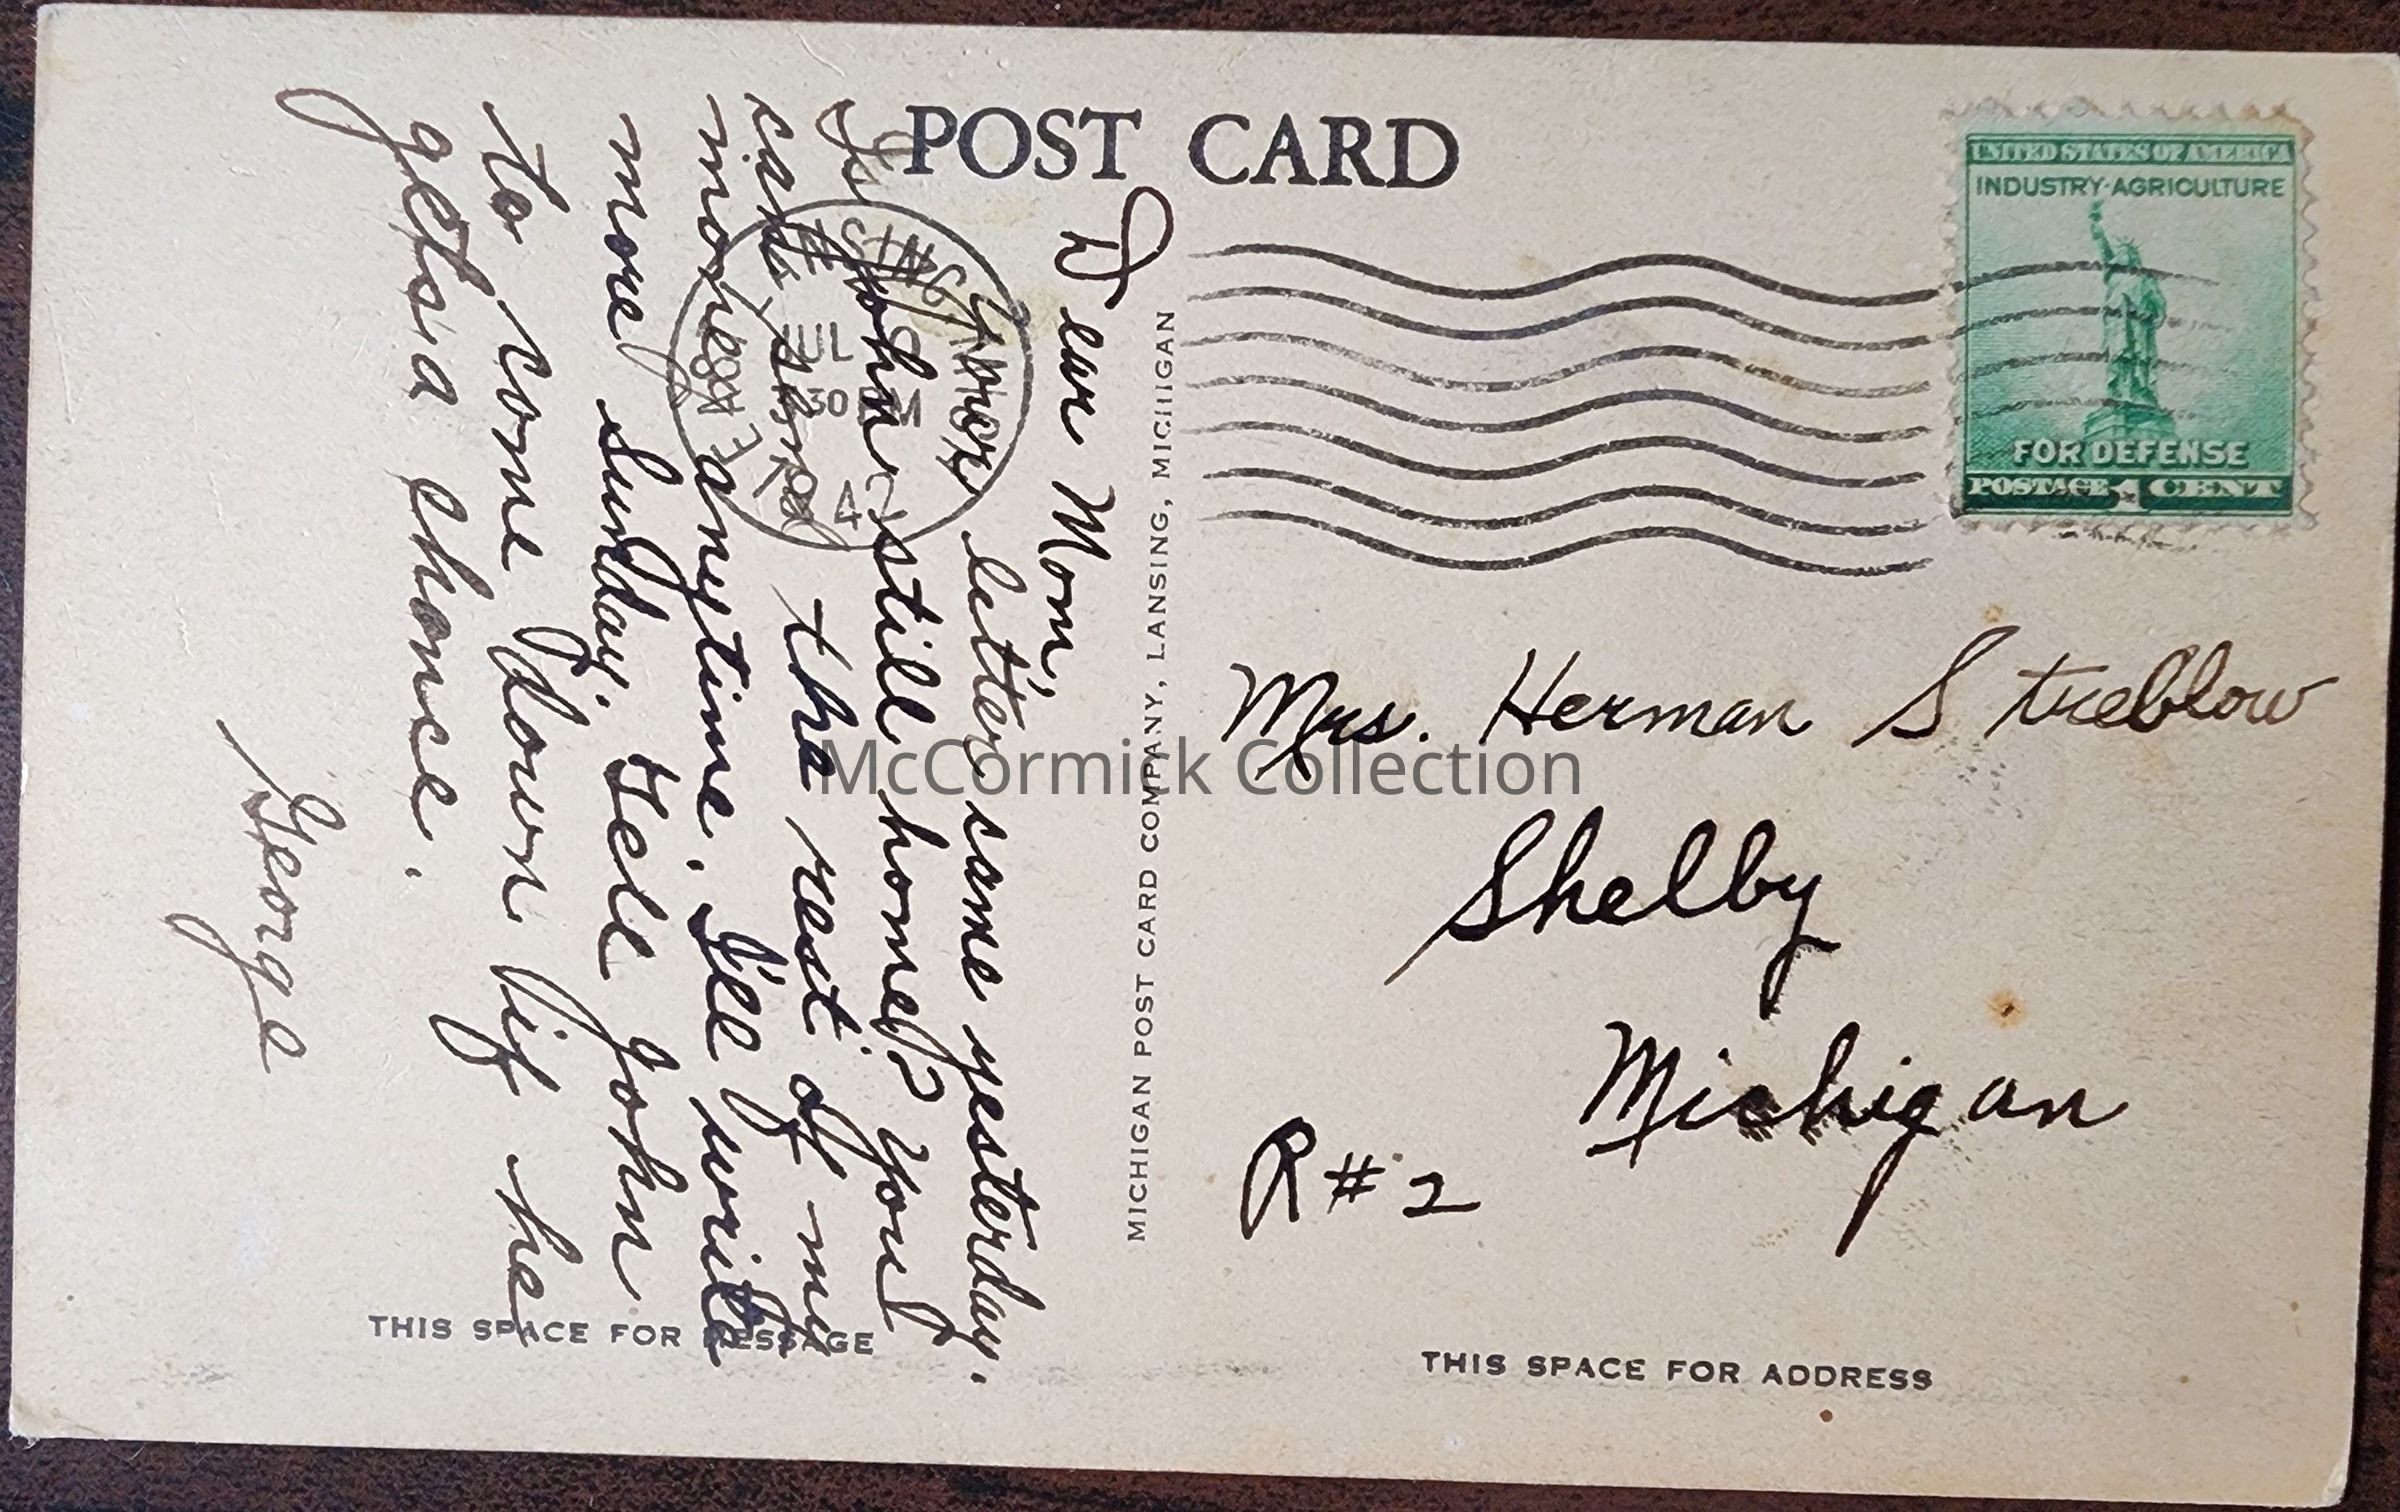 POST CARD
UNITED STATES OF AMERICA
INDUSTRY-AGRICULTURE
FOR DEFENSE
POSTAGE 1 CENT
Dear Mom,
Your letter came yesterday.
Is John still home? You
can send the rest of my
money anytime. I'll write
more Sunday. Tell John
to come down if he
gets a chance.
George
MICHIGAN POST CARD COMPANY, LANSING, MICHIGAN
Mrs. Herman Streblow
Shelby
Michigan
R#2
McCormick Collection
THIS SPACE FOR MESSAGE
THIS SPACE FOR ADDRESS